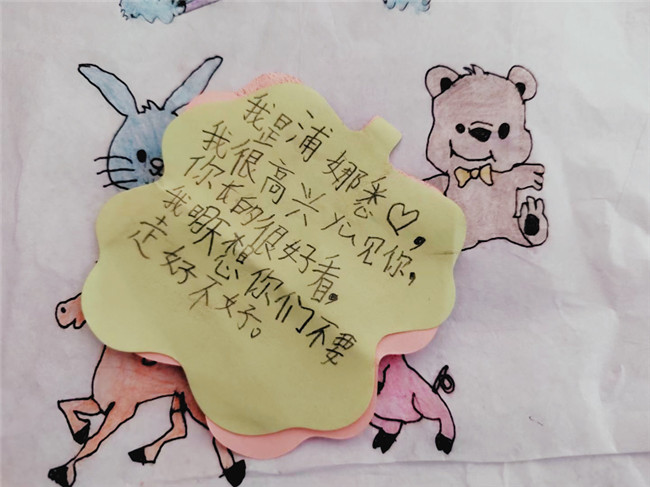 我是浦娜悉♡，
我很高兴见你，
你长的很好看。
我明天想你们不要
走好不好。